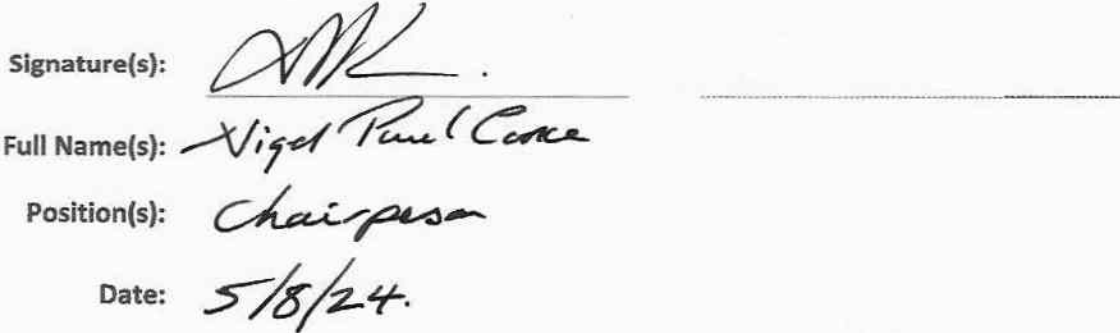 Signature(s):
Full Name(s): Nigel Paul
Position(s): Chairperson
Date: 5/8/24.